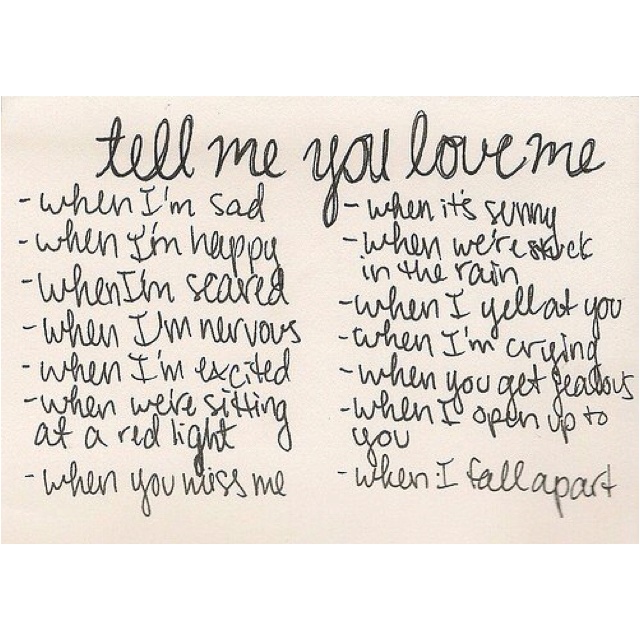 tell me you love me
- when I'm sad
- when I'm happy
- when I'm scared
- when I'm nervous
- when I'm excited
- when we're sitting
at a red light
- when you miss me
- when it's sunny
- when we're stuck
in the rain
- when I yell at you
- when I'm crying
- when you get jealous
- when I open up to
you
- when I fall apart